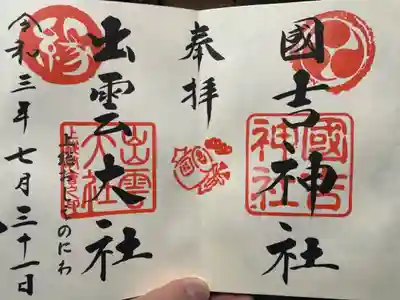 國吉神社
國吉
神社
奉拝
縁
出雲大社
出雲
大社
令和三年七月三十一日